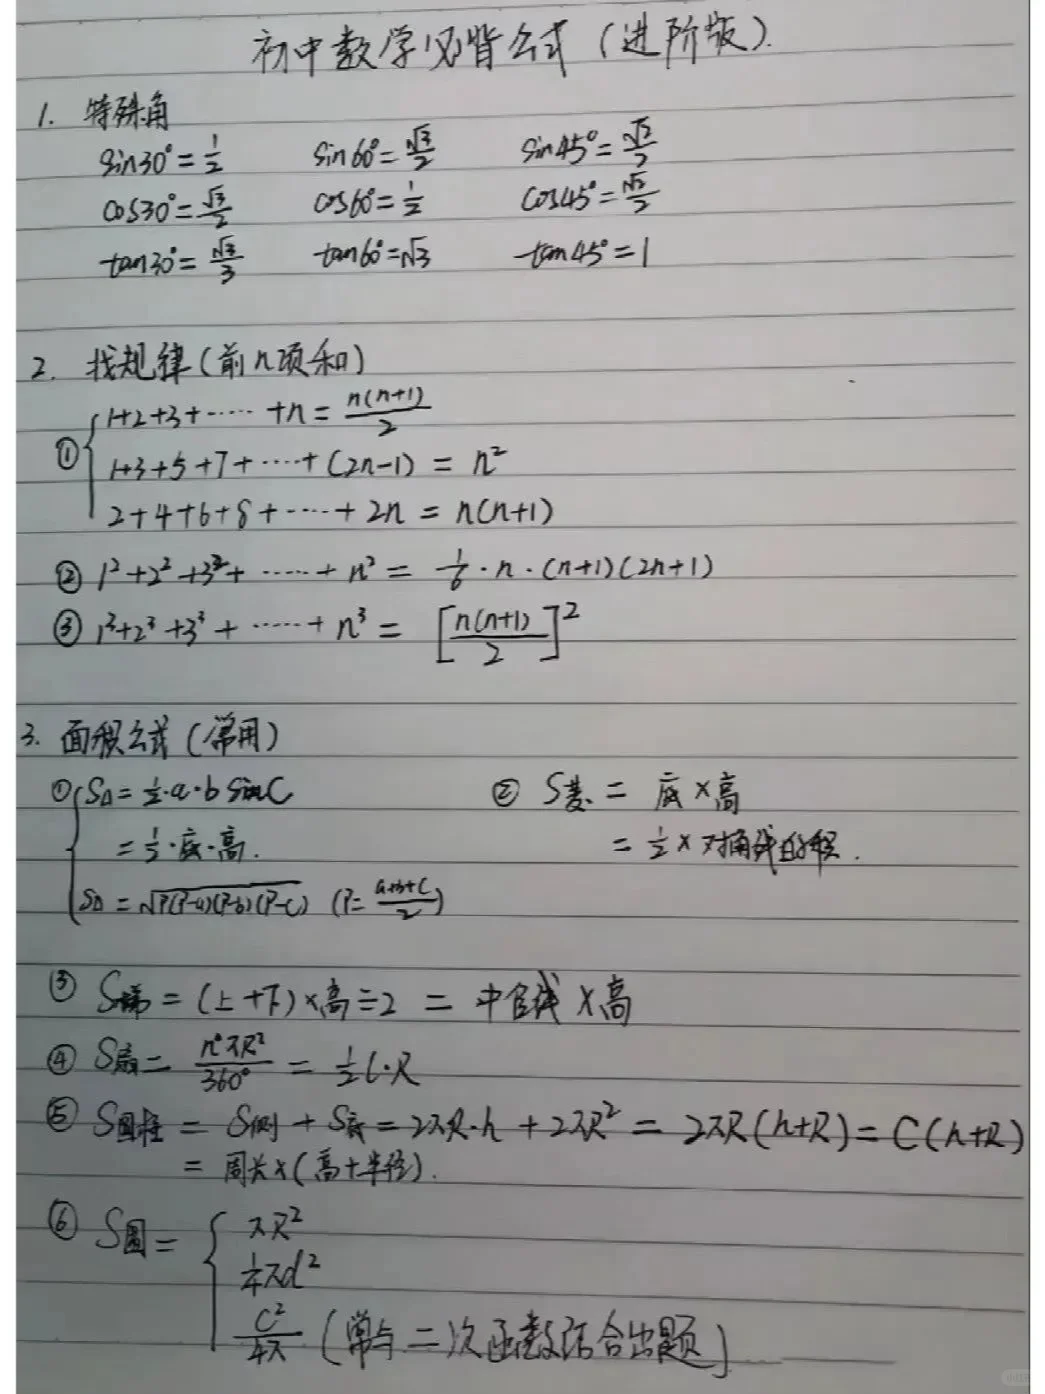 初中数学必背公式(进阶版).
1. 特殊角
sin30°=1/2 sin60°=√3/2 sin45°=√2/2
cos30°=√3/2 cos60°=1/2 cos45°=√2/2
tan30°=√3/3 tan60°=√3 tan45°=1
2. 找规律(前n项和)
① 1+2+3+……+n=n(n+1)/2
1+3+5+7+……+(2n-1)=n²
2+4+6+8+……+2n=n(n+1)
② 1²+2²+3²+……+n²=1/6·n·(n+1)(2n+1)
③ 1³+2³+3³+……+n³=[n(n+1)/2]²
3. 面积公式(常用)
① S△=1/2·a·b sinC ② S菱.=底×高
=1/2·底·高. =1/2×对角线的积.
S△=√P(P-a)(P-b)(P-c) (P=a+b+c/2)
③ S梯=(上+下)×高÷2=中位线×高
④ S扇=n°πR²/360°=1/2l·R
⑤ S圆柱=S侧+S底=2πR·h+2πR²=2πR(h+R)=C(h+R)
=周长×(高+半径).
⑥ S圆={πR²
1/4πd²
C²/4π (常与二次函数结合出题)